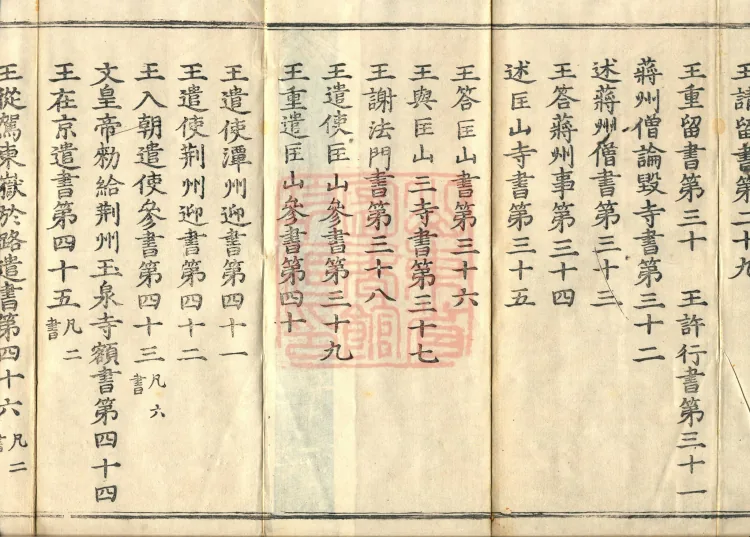 王請留書第二十九
王重留書第三十　王許行書第三十一
蔣州僧論毀寺書第三十二
述蔣州僧書第三十三
王答蔣州事第三十四
述匡山寺書第三十五
王答匡山書第三十六
王與匡山三寺書第三十七
王謝法門書第三十八
王遣使匡山參書第三十九
王重遣匡山參書第四十
王遣使潭州迎書第四十一
王遣使荊州迎書第四十二
王入朝遣使參書第四十三 凡六書
文皇帝勑給荊州玉泉寺額書第四十四
王在京遣書第四十五 凡二書
王從駕東嶽於路遣書第四十六 凡二書